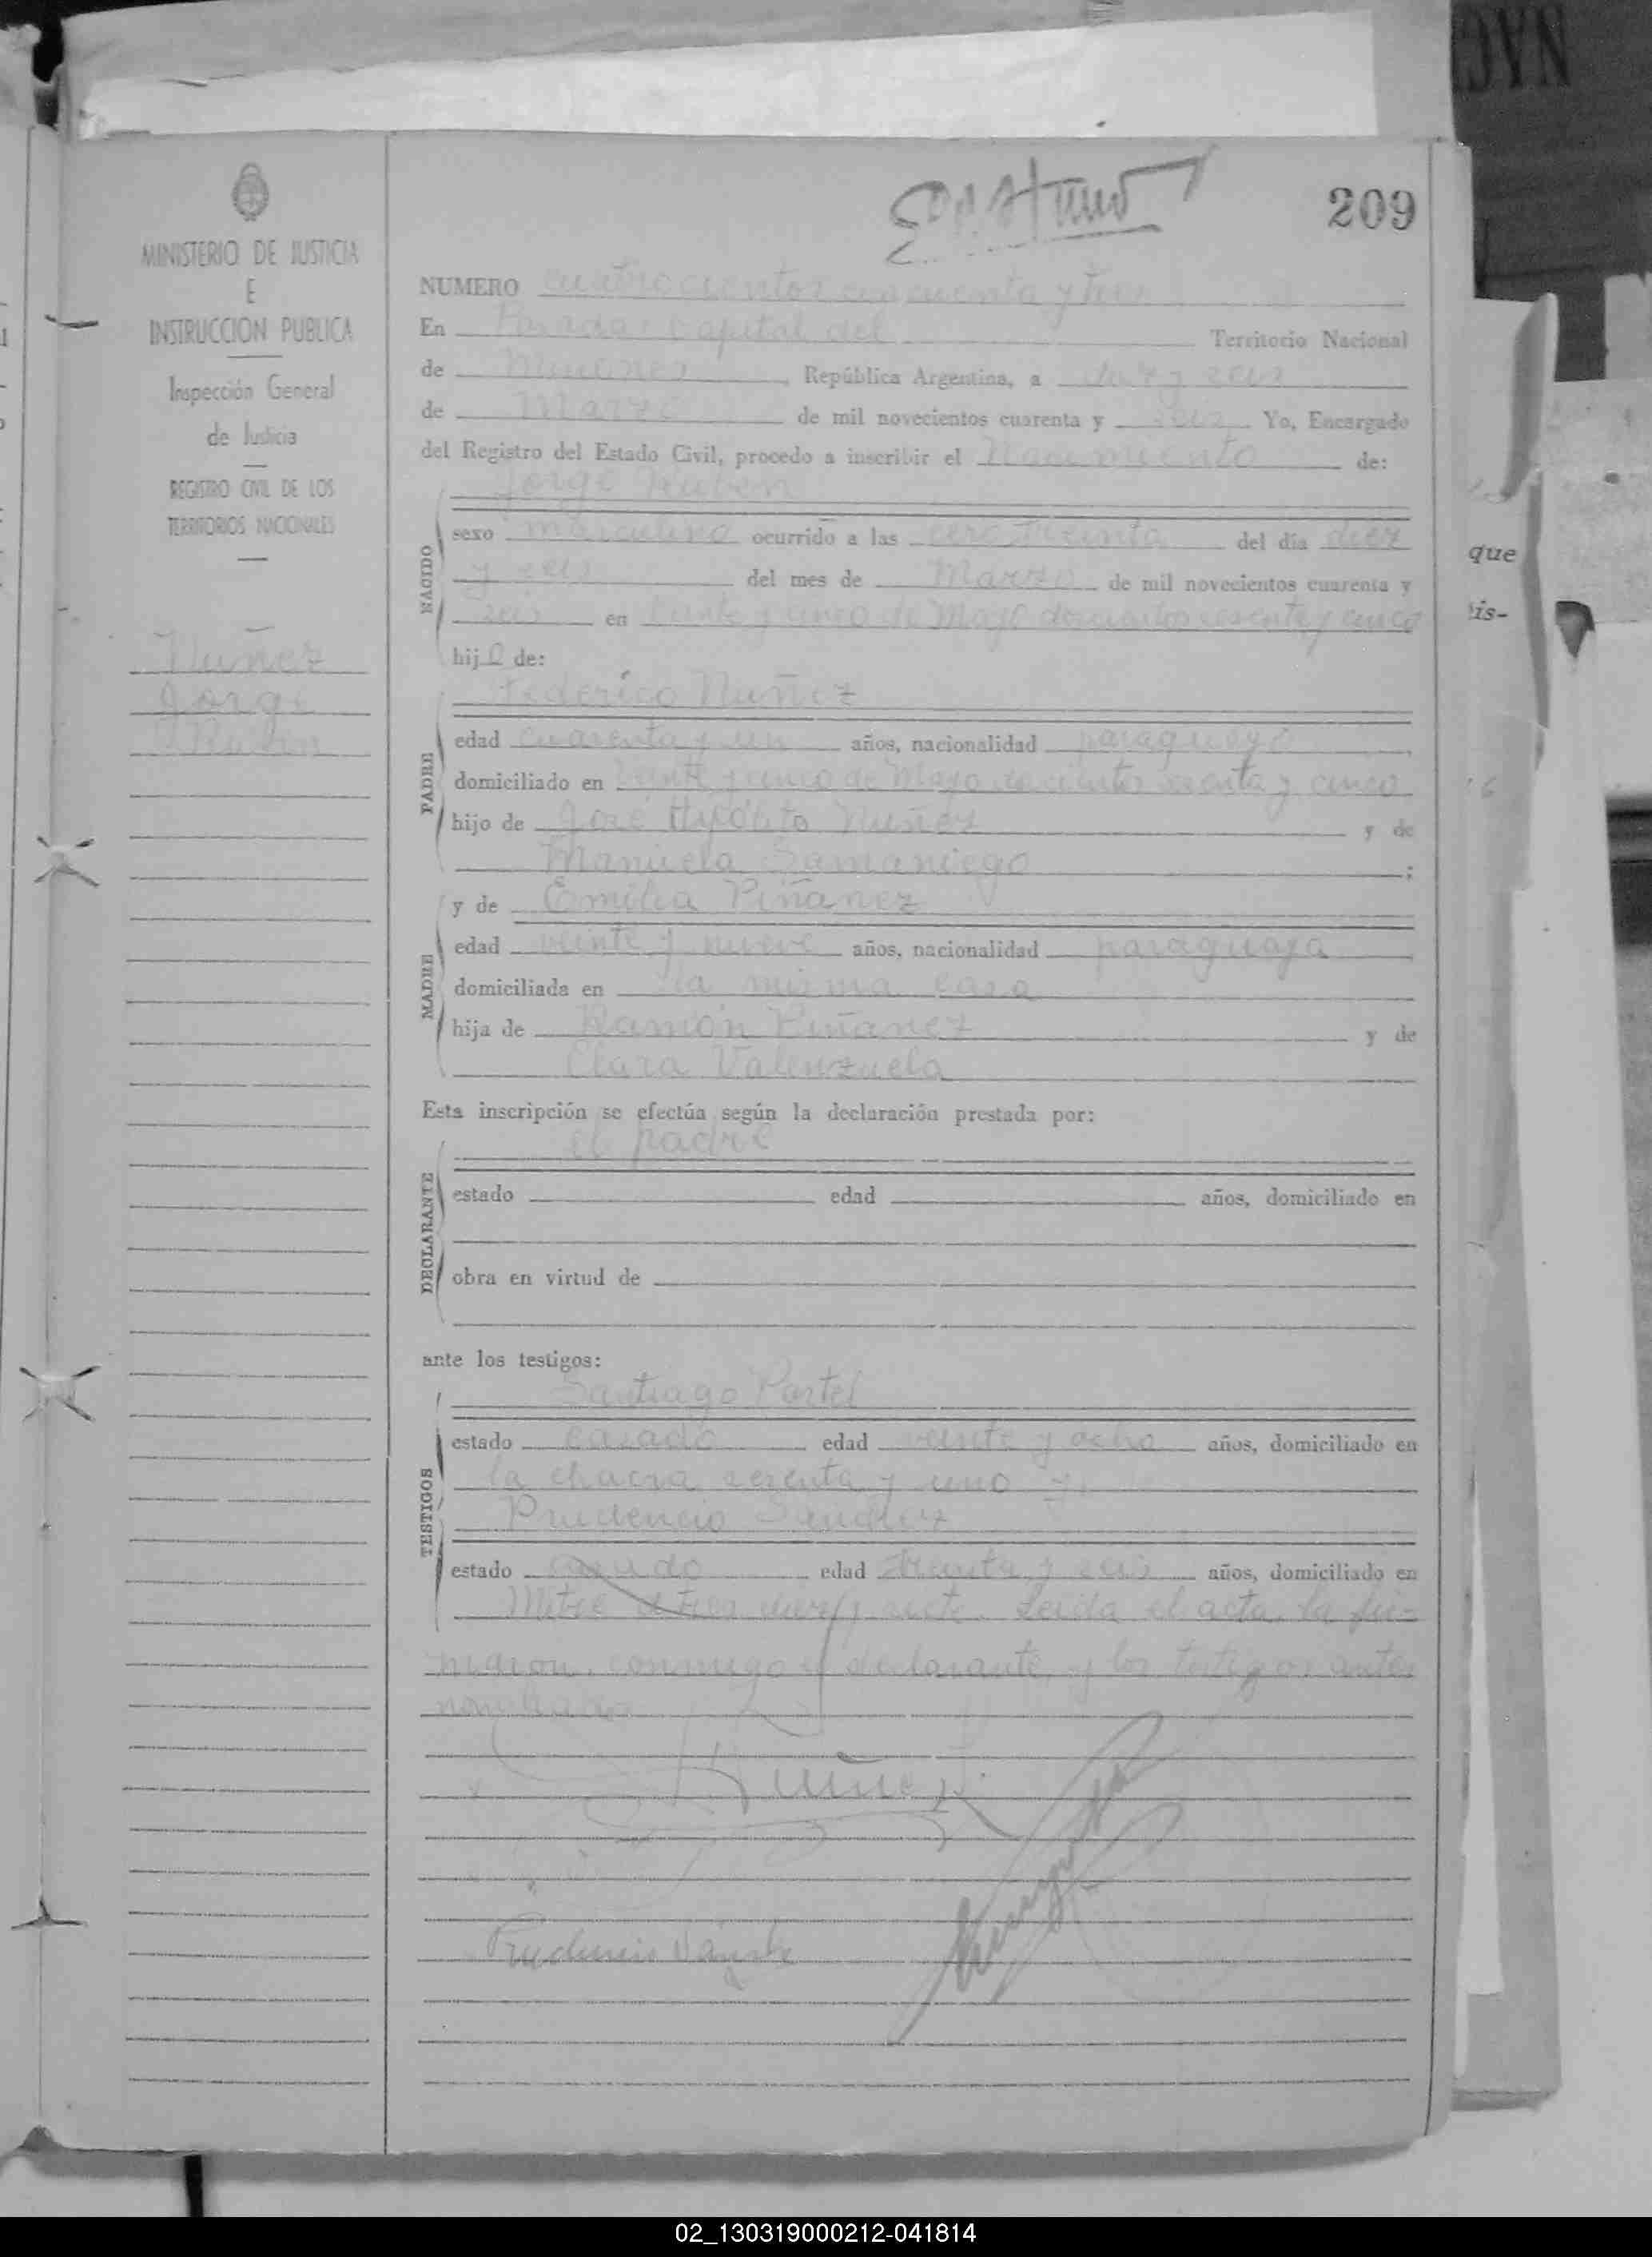 NACI
209
MINISTERIO DE JUSTICIA
E
INSTRUCCION PUBLICA
Inspección General
de Justicia
REGISTRO CIVIL DE LOS
TERRITORIOS NACIONALES
Nuñez
Jorge
Ruben
NUMERO cuatrocientos cincuenta y tres
En Posadas capital del Territorio Nacional
de Misiones, República Argentina, a diez y seis
de Marzo de mil novecientos cuarenta y seis Yo, Encargado
del Registro del Estado Civil, procedo a inscribir el Nacimiento de:
Jorge Ruben
NACIDO
sexo masculino ocurrido a las cero treinta del día diez
y seis del mes de Marzo de mil novecientos cuarenta y
seis en veinte y cinco de Mayo doscientos sesenta y cinco
hijo de:
Federico Nuñez
PADRE
edad cuarenta y un años, nacionalidad paraguayo,
domiciliado en veinte y cinco de Mayo doscientos sesenta y cinco
hijo de José Hipólito Nuñez y de
Manuela Samaniego;
y de Emilia Piñanez
MADRE
edad veinte y nueve años, nacionalidad paraguaya
domiciliada en la misma casa
hija de Ramón Piñanez y de
Clara Valenzuela
Esta inscripción se efectúa según la declaración prestada por:
el padre
DECLARANTE
estado edad años, domiciliado en
obra en virtud de
ante los testigos:
Santiago Portel
TESTIGOS
estado casado edad veinte y ocho años, domiciliado en
la chacra sesenta y uno y
Prudencio Sanchez
estado casado edad treinta y seis años, domiciliado en
Mitre diez y siete. Leida el acta, la fir-
maron conmigo el declarante y los testigos antes
nombrados
Nuñez
Prudencio
que
tis-
02_130319000212-041814